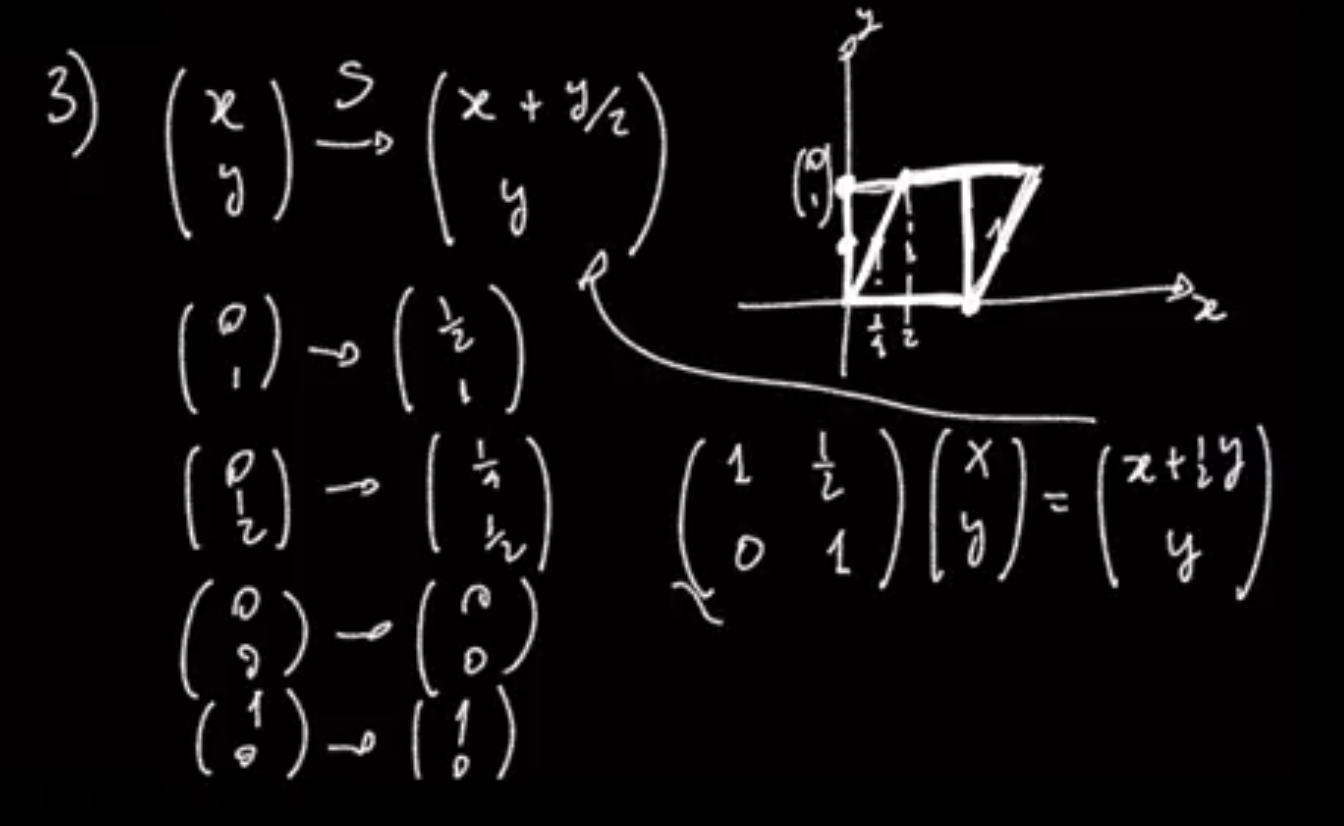 3) (x y) S→ (x + y/2 y)
(0 1) → (1/2 1)
(0 1/2) → (1/4 1/2)
(0 0) → (0 0)
(1 0) → (1 0)
y
(0 1)
1/4 1/2
x
(1 1/2 0 1) (x y) = (x + 1/2 y y)